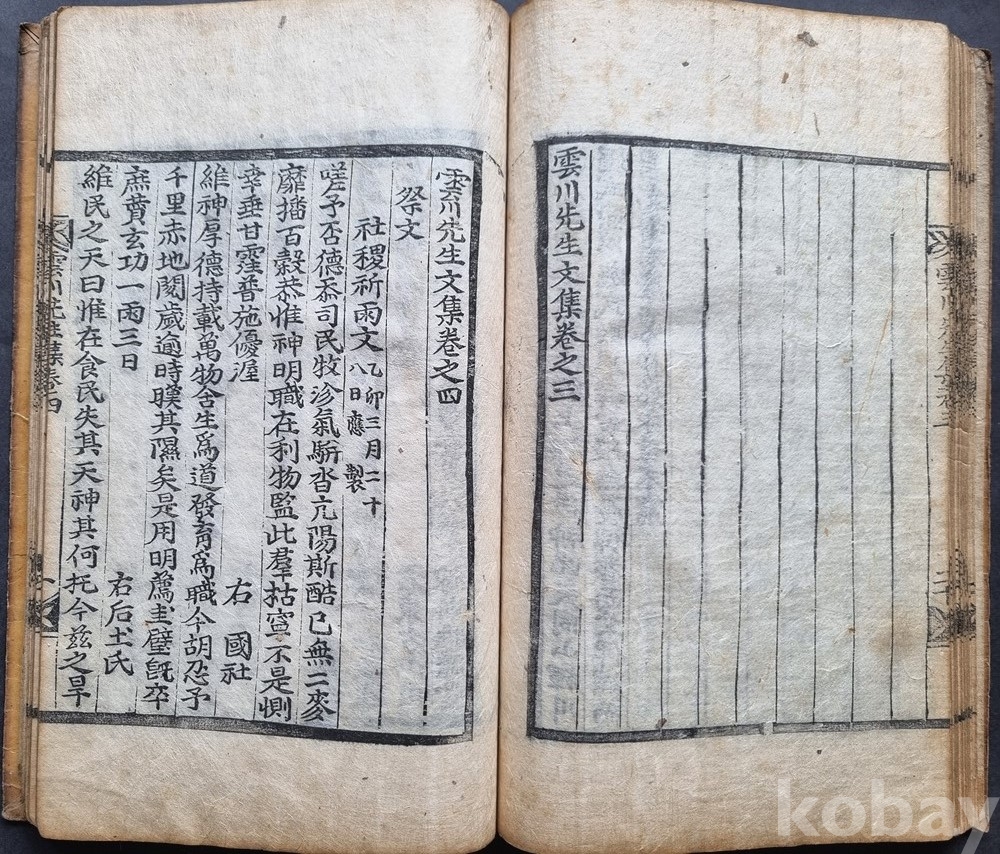 雲川先生文集卷之三
雲川先生文集卷之四
祭文
社稷祈雨文 乙卯三月二十
八日應製
嗟予否德忝司民牧沴氣騈沓亢陽斯酷已無二麥
靡播百穀恭惟神明職在利物監此羣枯寧不是惻
幸垂甘霔普施優渥 右 國社
維神厚德持載萬物含生爲道發育爲職今胡忍予
千里赤地閱歲逾時暵其隰矣是用明薦圭璧旣卒
庶賁玄功一雨三日 右后土氏
維民之天曰惟在食民失其天神其何托今玆之旱
kobay